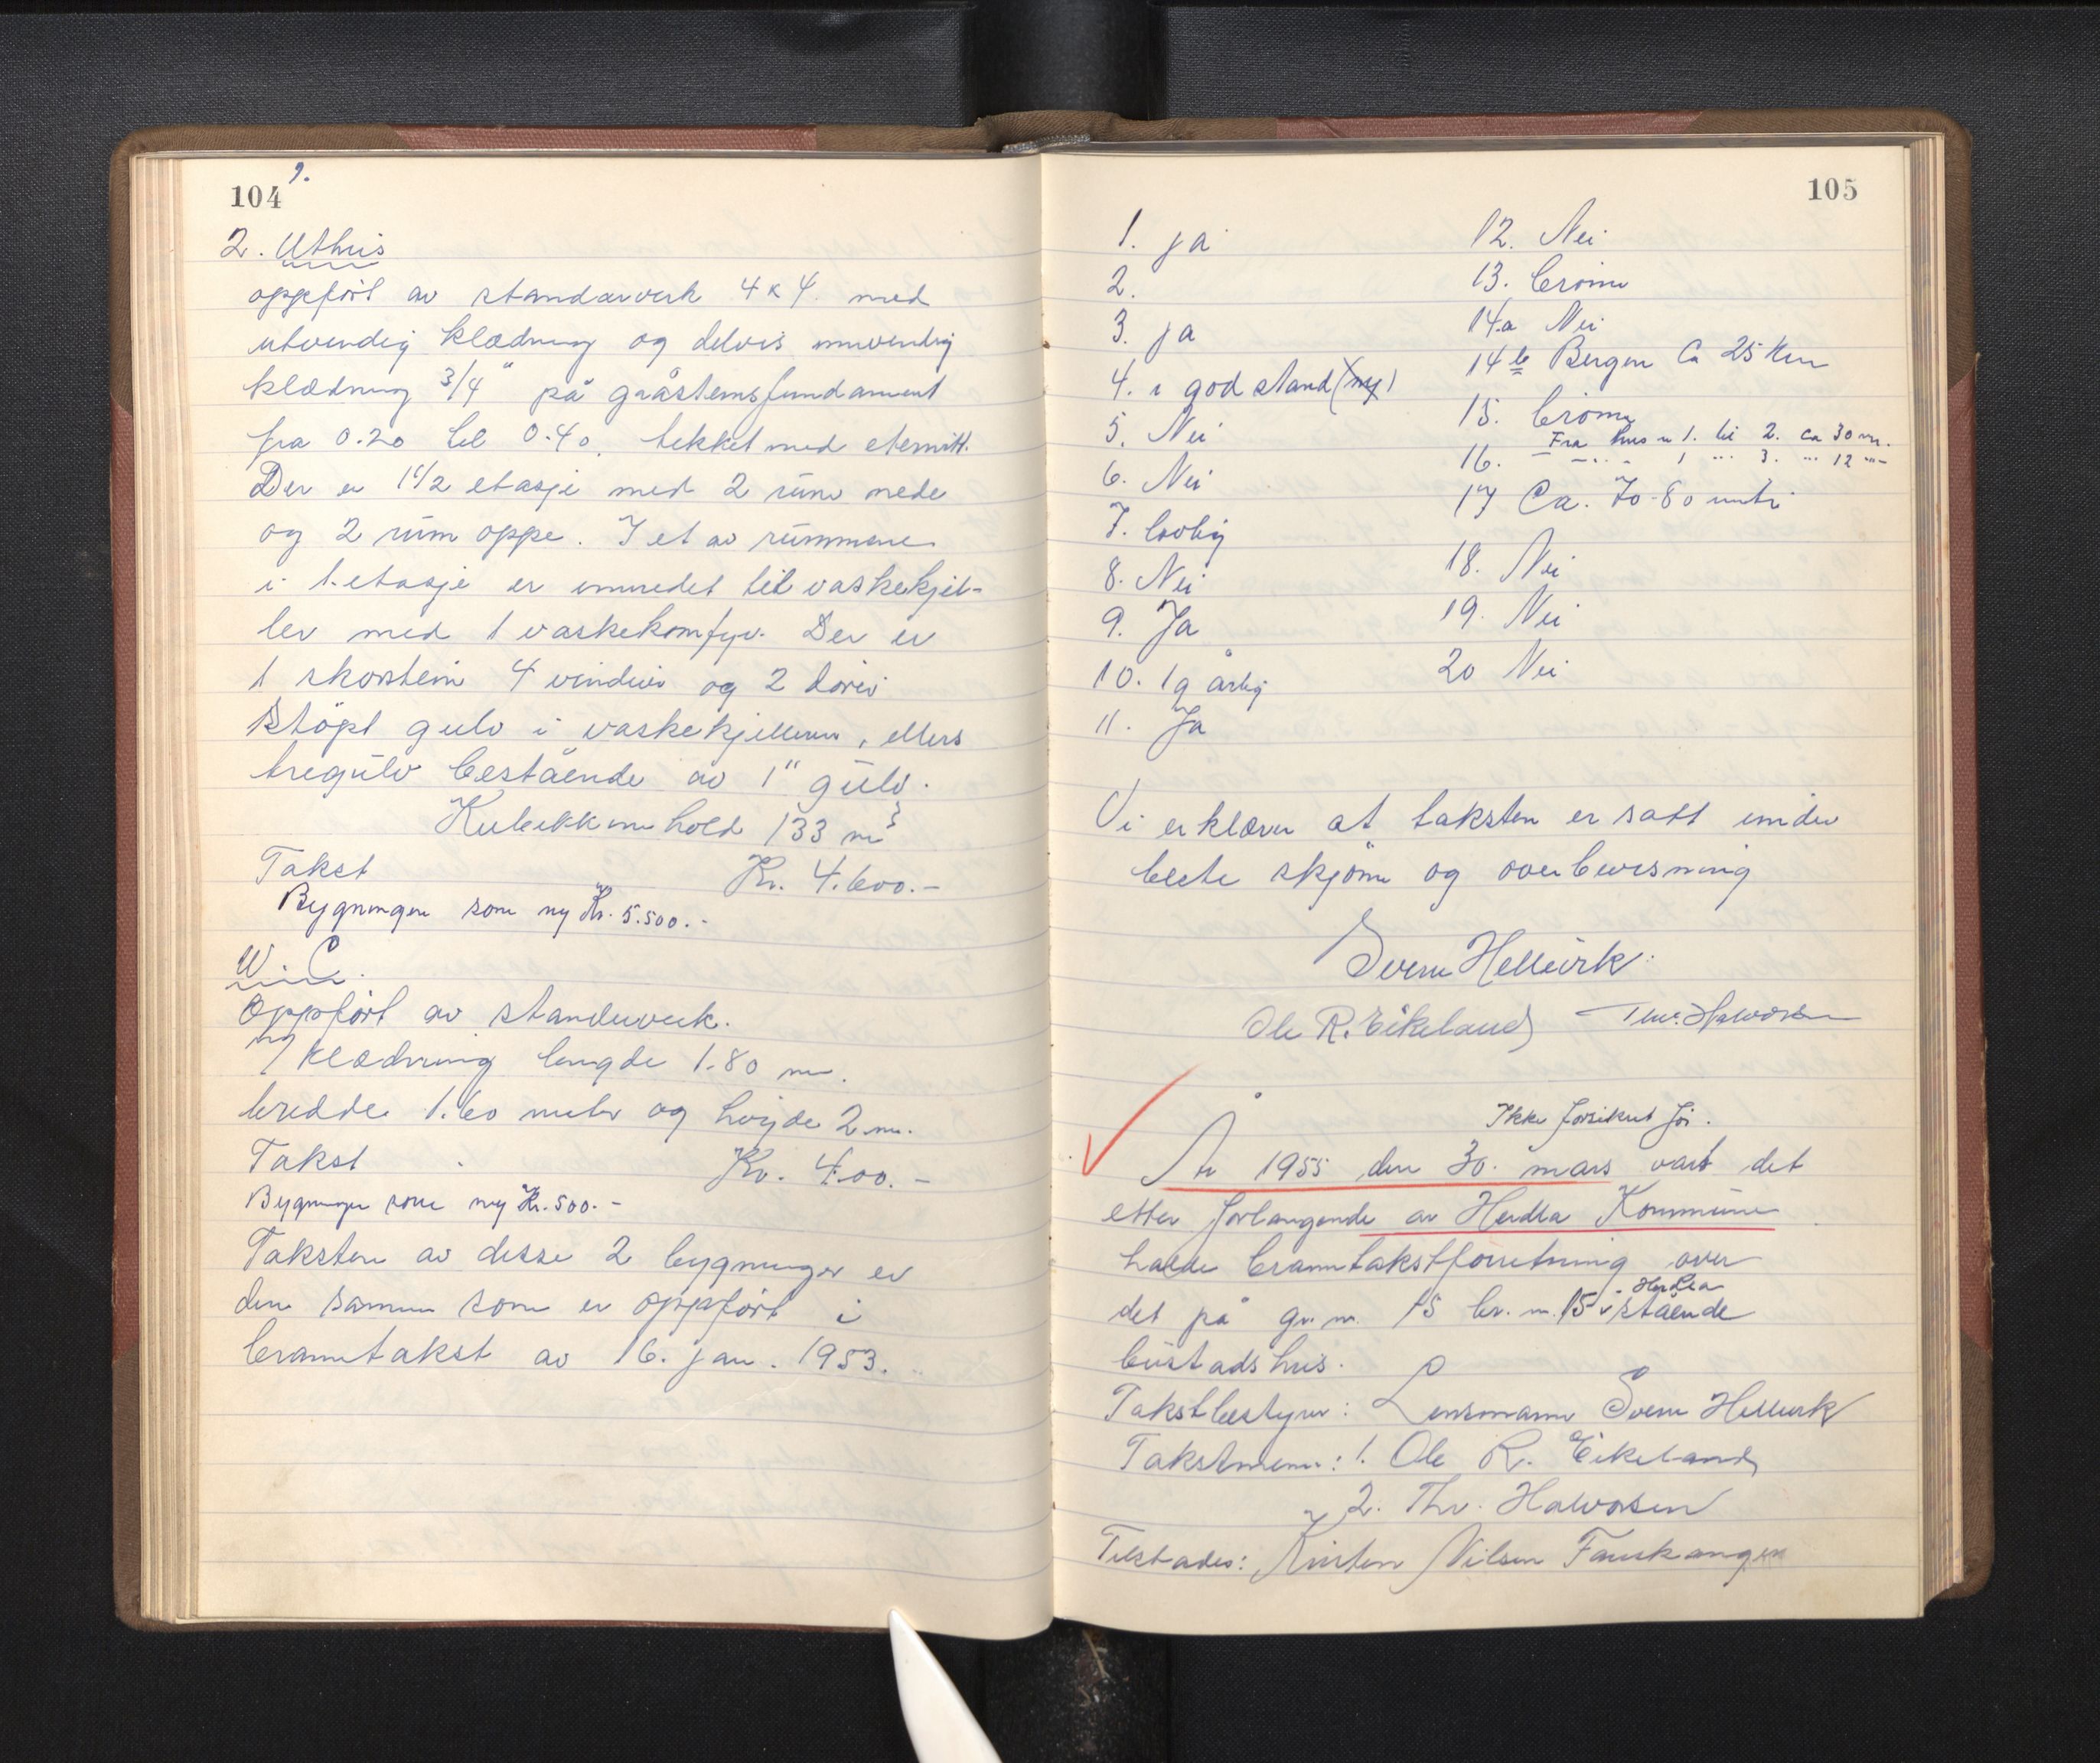 104
2. Uthus
oppført av standarverk 4 x 4 med
utvendig klædning og delvis innvendig
klædning 3/4" på gråstensfundament
fra 0.20 til 0.40, tekket med eternitt.
Der er 1 1/2 etasje med 2 rum nede
og 2 rum oppe. I et av rummene
i 1. etasje er innredet til vaskekjel-
ler med 1 vaskekomfyr. Der er
1 skorstein 4 vinduer og 2 dører
Støpt gulv i vaskekjelleren, ellers
tregulv bestående av 1" gulv.
Kubikkinnhold 133 m3
Takst Kr. 4.600.-
Bygningen som ny Kr. 5.500.-
W.C.
Oppført av standerverk.
og klædning lengde 1.80 m.
bredde 1.60 meter og høyde 2 m.
Takst Kr. 400.-
Bygningen som ny Kr. 500.-
Taksten av disse 2 bygninger er
den samme som er oppført i
branntakst av 16. jan. 1953.
105
1. ja
2.
3. ja
4. i god stand (ny)
5. Nei
6. Nei
7. Lovlig
8. Nei
9. Ja
10. 1 g årlig
11. Ja
12. Nei
13. Brønn
14a Nei
14b Bergen Ca 25 km
15. Brønn
16. Fra hus nr 1. til 2. ca 30 m.
1 ... 3. ... 12 -"-
17 Ca. 70-80 meter
18. Nei
19. Nei
20 Nei
Vi erklærer at taksten er satt under
beste skjønn og overbevisning
Sverre Hellevik
Ole R. Eikeland Thv. Halvorsen
Ikke forsikret før.
År 1955 den 30. mars vart det
etter forlangende av Herdla Kommune
halde branntakstforretning over
det på gr. nr. 15 br. nr. 15 i Herdla stående
bustadshus.
Takstbestyrer: Lensmann Sverre Hellevik
Takstmenn: 1. Ole R. Eikeland
2. Thv. Halvorsen
Tilstades: Kirsten Nilsen Fauskanger